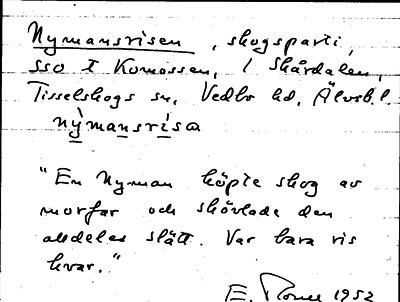 Nymansrisen, skogsparti,
SSO t Komossen, i Skårdalen,
Tisselskogs sn, Vedbo hd, Älvsb.l.
nỳmansrìsa
"En Nyman köpte skog av
morfar och skövlade den
alldeles slätt. Var bara ris
kvar."
E. 1952